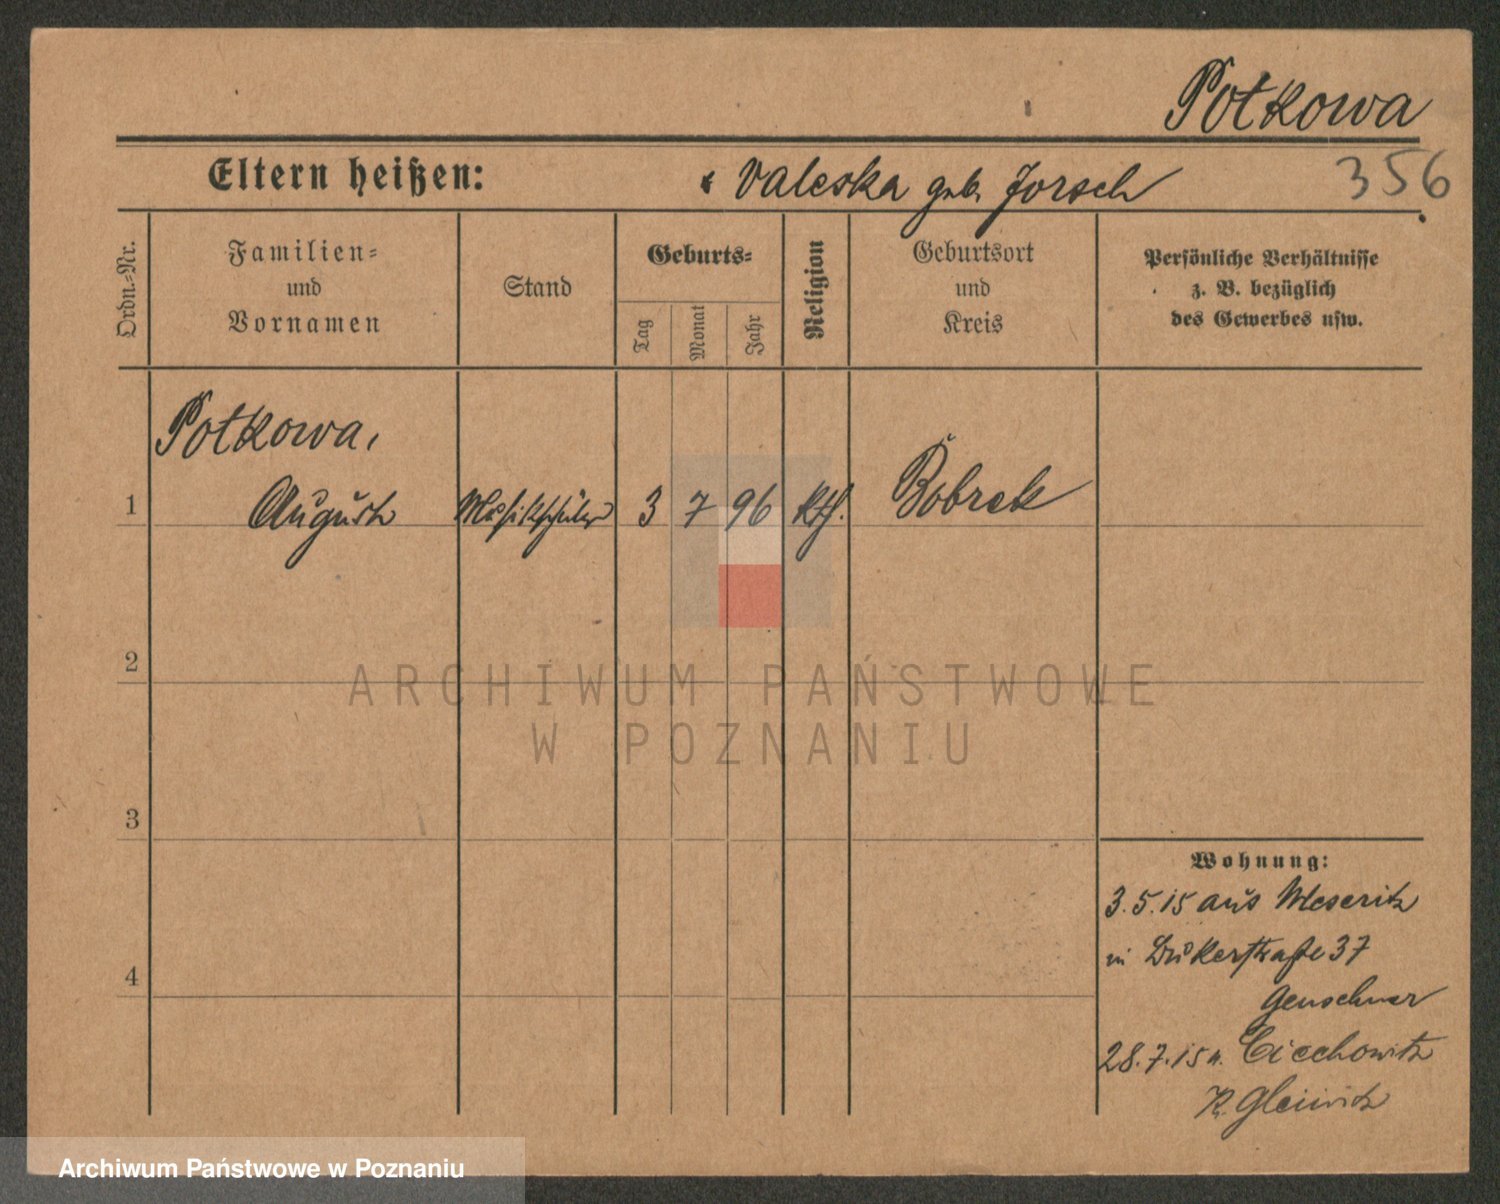 Potkowa
Eltern heißen: Valeska geb. Jorsch
356
Ordn.-Nr.
Familien-
und
Vornamen
Stand
Geburts-
Tag
Monat
Jahr
Religion
Geburtsort
und
Kreis
Persönliche Verhältnisse
z. B. bezüglich
des Gewerbes usw.
Potkowa,
1 August Musikschüler 3 7 96 kth. Bobrek
2
3
4
Wohnung:
3.5.15 aus Meseritz
in 37
Genschmer
28.7.15 n. Ciechowitz
K. Gleiwitz
ARCHIWUM PAŃSTWOWE
W POZNANIU
Archiwum Państwowe w Poznaniu